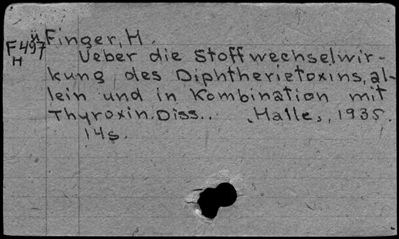 Finger, H.
F497
H
Ueber die Stoffwechselwir-
kung des Diphtherietoxins, al-
lein und in Kombination mit
Thyroxin. Diss.. Halle, 1935.
14s.